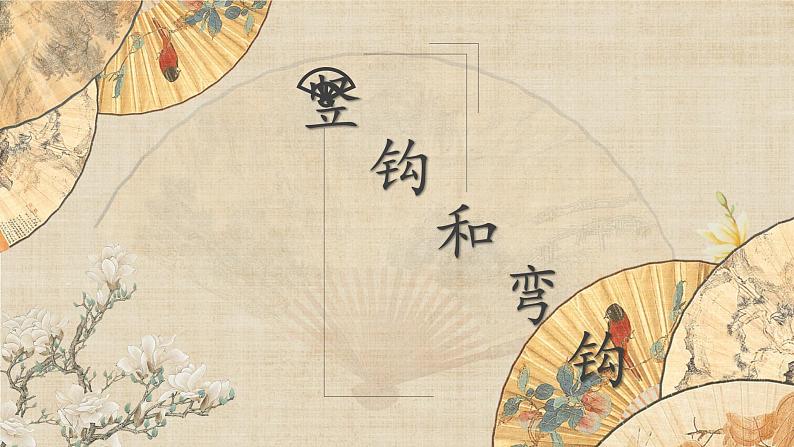 竖钩和弯钩